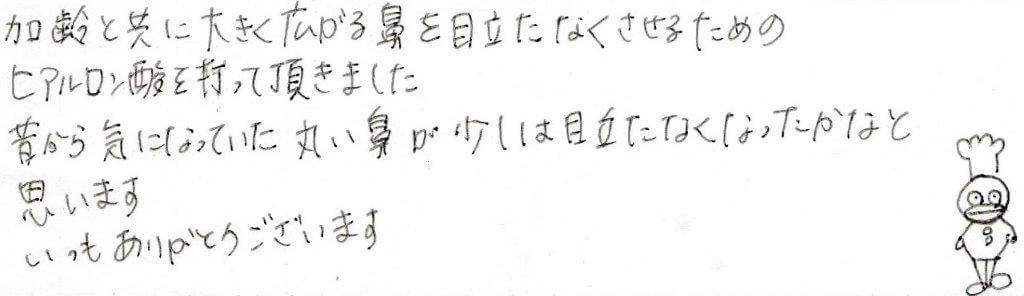 加齢と共に大きく広がる鼻を目立たなくさせるための
ヒアルロン酸を打って頂きました
昔から気になっていた丸い鼻が少しは目立たなくなったかなと
思います
いつもありがとうございます